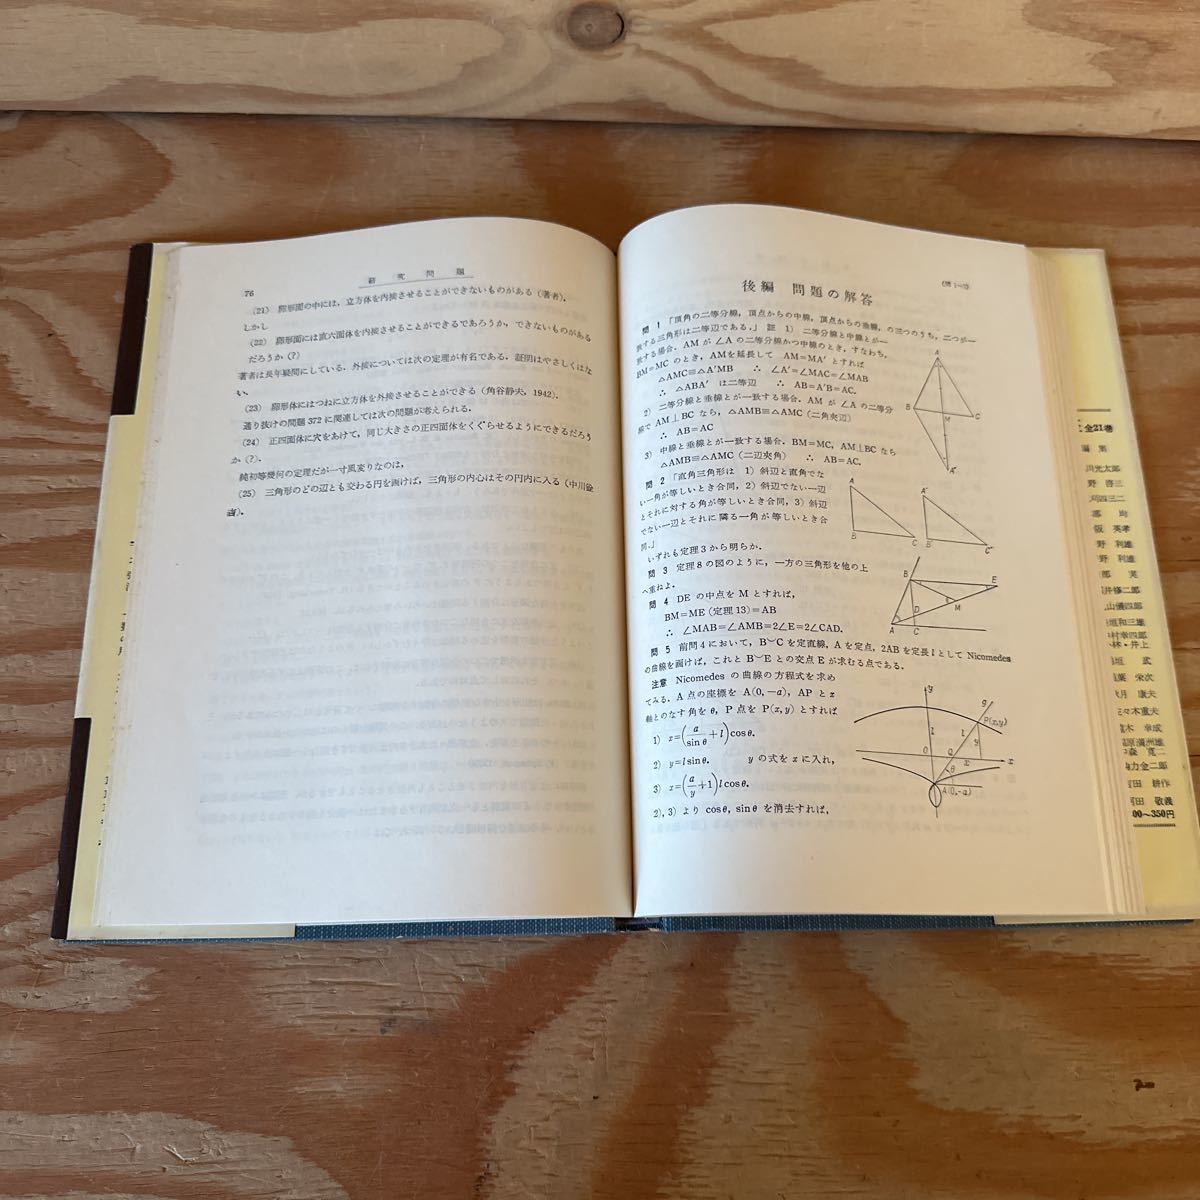 76
研究問題
(21) 卵形面の中には，立方体を内接させることができないものがある（著者）．
しかし
(22) 卵形面には直六面体を内接させることができるであろうか，できないものがある
だろうか（？）
著者は長年疑問にしている．外接については次の定理が有名である．証明はやさしくはな
い．
(23) 卵形体にはつねに立方体を外接させることができる（角谷静夫，1942）．
通り抜けの問題372に関連しては次の問題が考えられる．
(24) 正四面体に穴をあけて，同じ大きさの正四面体をくぐらせるようにできるだろう
か（？）．
純初等幾何の定理だが一寸風変りなのは，
(25) 三角形のどの辺とも交わる円を画けば，三角形の内心はその円内に入る（中川
）．
後編 問題の解答
(問1～5)
問 1 「頂角の二等分線，頂点からの中線，頂点からの垂線，の三つのうち，二つが一
致する三角形は二等辺である．」 証 1) 二等分線と中線とが一
致する場合．AM が ∠A の二等分線かつ中線のとき，すなわち，
BM=MC のとき，AMを延長して AM=MA′ とすれば
△AMC≡△A′MB ∴ ∠A′=∠MAC=∠MAB
∴ △ABA′ は二等辺 ∴ AB=A′B=AC.
2) 二等分線と垂線とが一致する場合．AM が ∠A の二等分
線で AM⊥BC なら，△AMB≡△AMC（二角夾辺）
∴ AB=AC
3) 中線と垂線とが一致する場合．BM=MC, AM⊥BC なら
△AMB≡△AMC（二辺夾角） ∴ AB=AC.
問 2 「直角三角形は 1) 斜辺と直角でな
い一角が等しいとき合同，2) 斜辺でない一辺
とそれに対する角が等しいとき合同，3) 斜辺
でない一辺とそれに隣る一角が等しいとき合
同．」
いずれも定理3から明らか．
問 3 定理8の図のように，一方の三角形を他の上
へ重ねよ．
問 4 DE の中点を M とすれば，
BM=ME（定理13）=AB
∴ ∠MAB=∠AMB=2∠E=2∠CAD.
問 5 前問4において，B⌣C を定直線，A を定点，2AB を定長 l として Nicomedes
の曲線を画けば，これと B⌣E との交点 E が求むる点である．
注意 Nicomedes の曲線の方程式を求め
てみる．A 点の座標を A(0,−a)，AP と x
軸とのなす角を θ，P 点を P(x,y) とすれば
1) x=(a/sin θ+l)cos θ.
2) y=l sin θ. y の式を x に入れ，
3) x=(a/y+1)l cos θ.
2), 3) より cos θ, sin θ を消去すれば，
A
B
M
C
A′
A
B
C
A′
B′
C′
B
E
D
M
A
C
y
g
P(x,y)
l
l
y
O
Q
x
x
θ
A(0,−a)
全21巻
編集
川光太郎
野 啓三
刈四三二
部 均
阪 英孝
野 利雄
野 利雄
部 実
井修二郎
山儀四郎
垣和三雄
村幸四郎
林・井上
垣 武
葉 栄次
月 康夫
々木重夫
木 幸成
原満洲雄
森 寛二
力金二郎
田 耕作
田 敬義
00～350円